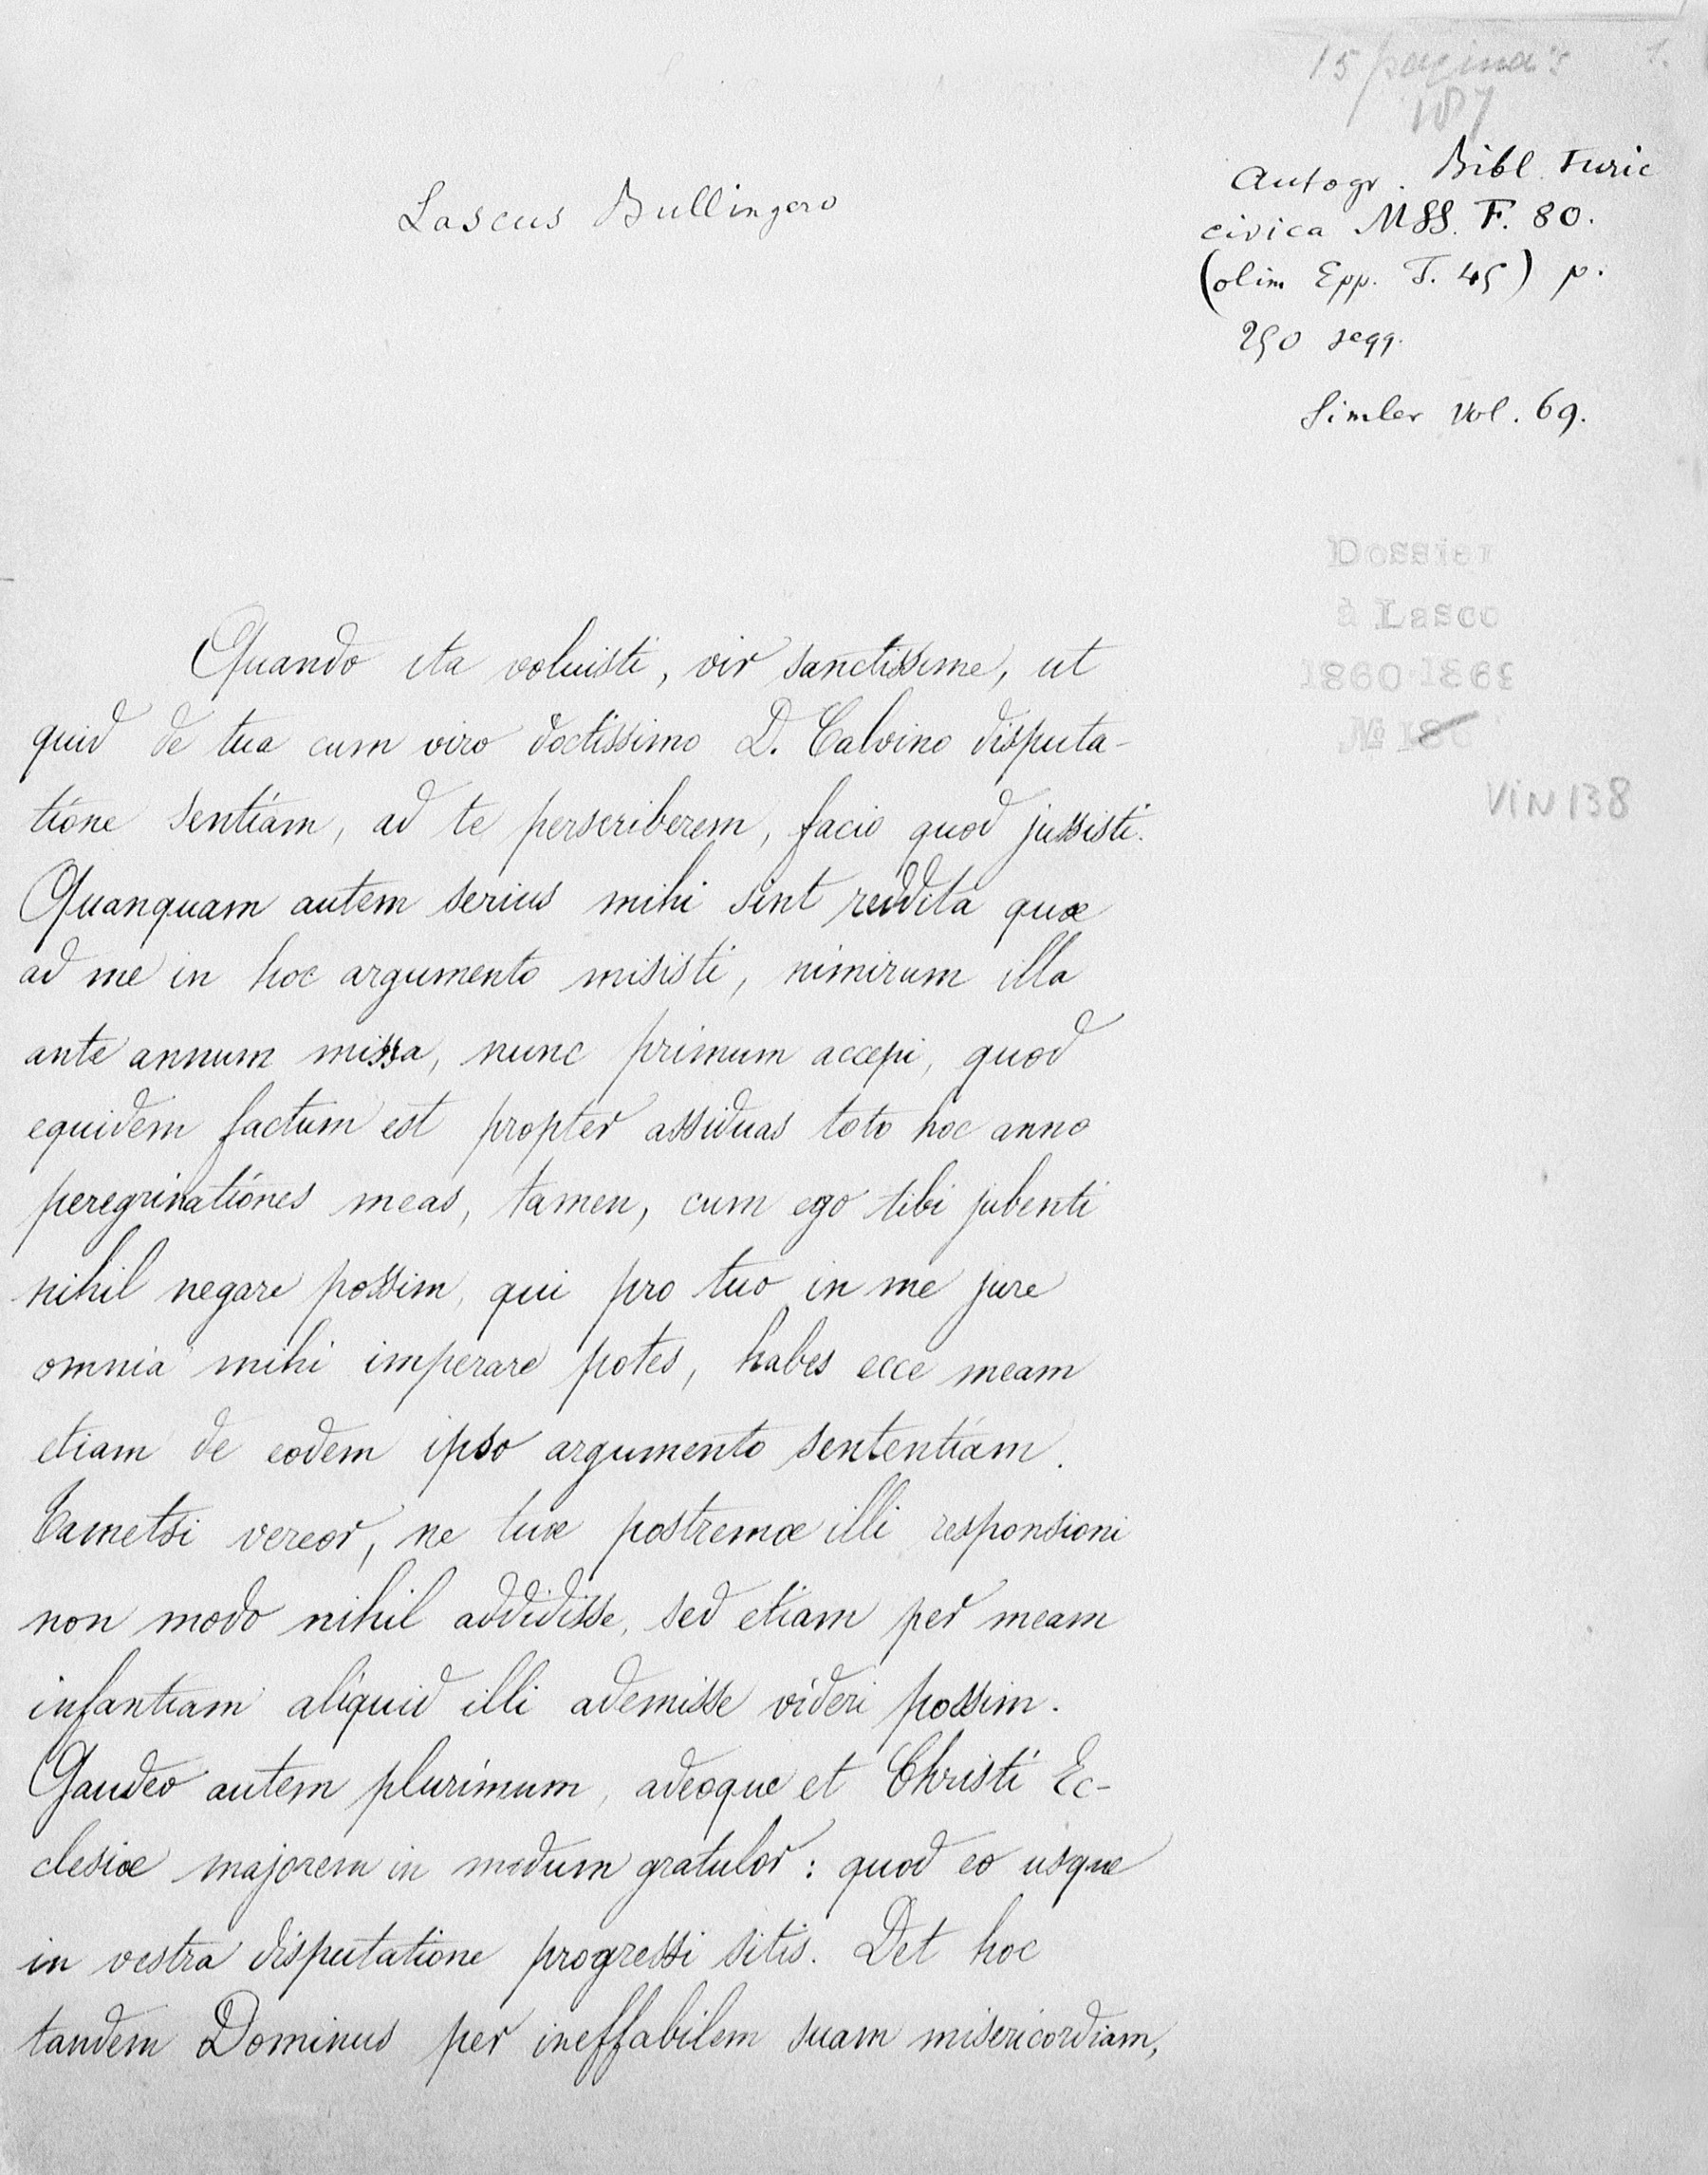 15 pagina's 1.
187
Lascus Bullingero
Autogr. Bibl. Turic
civica MSS. F. 80.
(olim Epp. T. 45) p.
250 seqq.
Simler Vol. 69.
Dossier
à Lasco
1860-1869
№
VIN 138
Quando ita voluisti, vir sanctissime, ut
quid de tua cum viro doctissimo D. Calvino disputa-
tione sentiam, ad te perscriberem, facio quod jussisti.
Quanquam autem serius mihi sint reddita quæ
ad me in hoc argumento misisti, nimirum illa
ante annum missa, nunc primum accepi, quod
equidem factum est propter assiduas toto hoc anno
peregrinationes meas, tamen, cum ego tibi jubenti
nihil negare possim, qui pro tuo in me jure
omnia mihi imperare potes, habes ecce meam
etiam de eodem ipso argumento sententiam.
Tametsi vereor, ne tuæ postremæ illi responsioni
non modo nihil addidisse, sed etiam per meam
infantiam aliquid illi ademisse videri possim.
Gaudeo autem plurimum, adeoque et Christi Ec-
clesiæ majorem in modum gratulor: quod eo usque
in vestra disputatione progressi sitis. Det hoc
tandem Dominus per ineffabilem suam misericordiam,